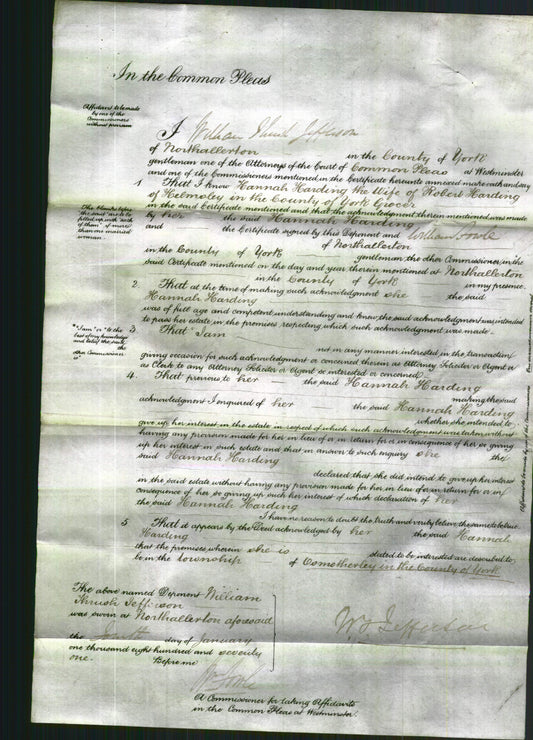 In the Common Pleas
Affidavit to be made
by one of the
Commissioners
without provision
I William Thrush Jefferson
of Northallerton in the County of York
gentleman one of the Attorneys of the Court of Common Pleas at Westminster
and one of the Commissioners mentioned in the Certificate hereunto annexed make oath and say
1 That I know Hannah Harding the Wife of Robert Harding
of Helmsley in the County of York Grocer
in the said Certificate mentioned and that the acknowledgment therein mentioned was made
by her the said Hannah Harding
and the Certificate signed by this Deponent and William Fowle
of Northallerton
in the County of York gentleman the other Commissioner in the
said Certificate mentioned on the day and year therein mentioned at Northallerton
in the County of York in my presence.
The blanks before
"the said" are to be
filled up with
"them" if more
than one married
woman.
2 That at the time of making such acknowledgment she the said
Hannah Harding
was of full age and competent understanding and knew the said acknowledgment was intended
to pass her estate in the premises respecting which such acknowledgment was made.
3 That I am
not in any manner interested in the transaction
giving occasion for such acknowledgment or concerned therein as Attorney Solicitor or Agent or
as Clerk to any Attorney Solicitor or Agent so interested or concerned
"I am" or "to the
best of my knowledge
and belief the said
the
other Commissioner
is"
4. That previous to her the said Hannah Harding
making the said
acknowledgment I inquired of her the said Hannah Harding
whether she intended to
give up her interest in the estate in respect of which such acknowledgment was taken without
having any provision made for her in lieu of or in return for or in consequence of her so giving
up her interest in such estate and that in answer to such inquiry she the
said Hannah Harding
declared that she did intend to give up her interest
in the said estate without having any provision made for her in lieu of or in return for or in
consequence of her so giving up such her interest of which declaration of her
the said Hannah Harding
I have no reason to doubt the truth and verily believe the same to be true
5 That it appears by the Deed acknowledged by her the said Hannah
Harding
that the premises wherein she is stated to be interested are described to
be in the township of Osmotherley in the County of York
The above named Deponent William
Thrush Jefferson
was sworn at Northallerton aforesaid
the fourth day of January
one thousand eight hundred and seventy
one. Before me
W T Jefferson
Wm Fowle
A Commissioner for taking Affidavits
in the Common Pleas at Westminster.